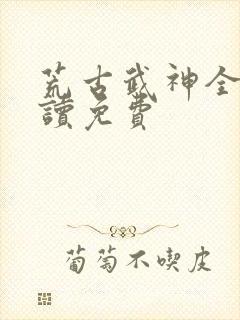 荒古武神全
讀免費
葡萄不喫皮